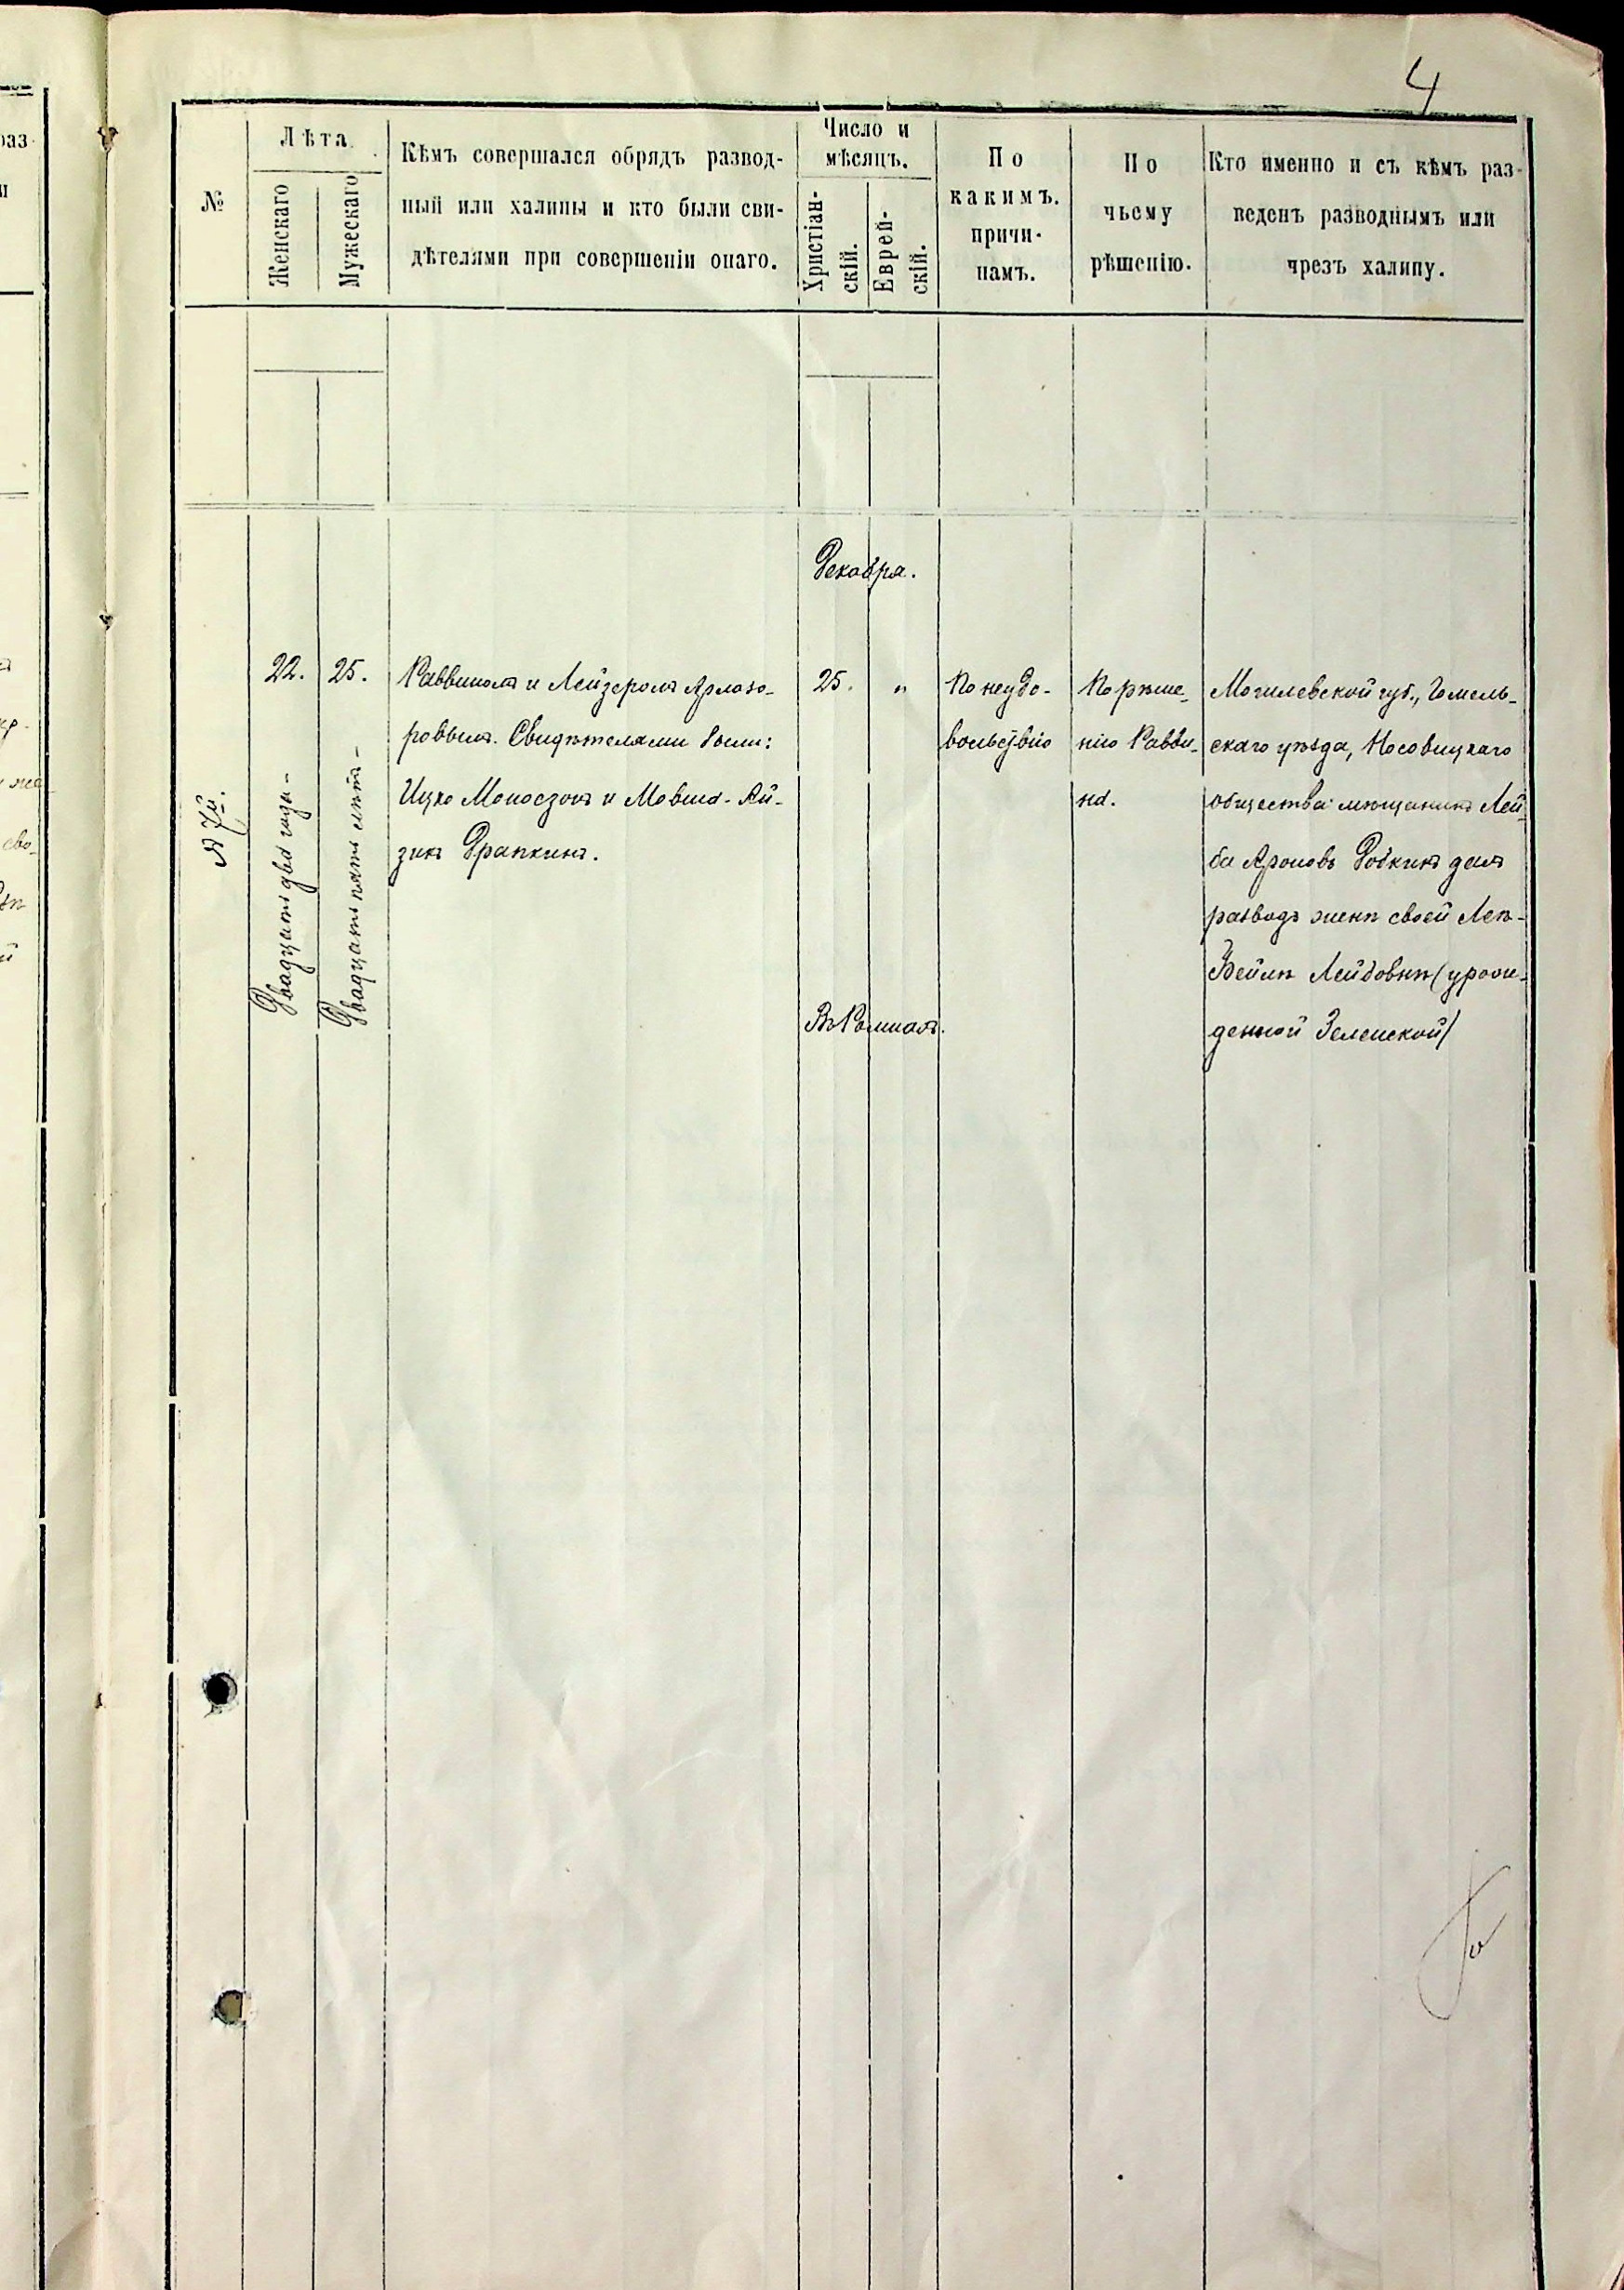 4
№
Лѣта.
Женскаго
Мужескаго
Кѣмъ совершался обрядъ развод-
ный или халицы и кто были сви-
дѣтелями при совершеніи онаго.
Число и
мѣсяцъ.
Христіан-
скій.
Еврей-
скій.
По
какимъ.
причи-
намъ.
По
чьему
рѣшенію.
Кто именно и съ кѣмъ раз-
веденъ разводнымъ или
чрезъ халицу.
Декабря.
№ 7й.
22.
Двадцать два года -
25.
Двадцать пять лѣтъ -
Раввиномъ и Лейзеромъ Арлазо-
ровымъ. Свидѣтелями были:
Ицко Моносзонъ и Мовша-Ай-
зикъ Драпкинъ.
25. "
Въ Ромнахъ.
По неудо-
вольствію
По рѣше-
нію Равви-
на.
Могилевской губ., Гомель-
скаго уѣзда, Носовицкаго
общества мѣщанинъ Лей-
ба Ароновъ Добкинъ далъ
разводъ женѣ своей Леѣ-
Бейлѣ Лейбовнѣ (урож-
денной Зеленской)